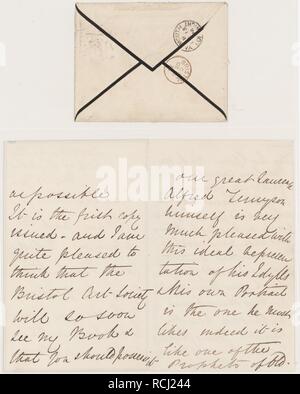 as possible
It is the first copy
issued - and I am
quite pleased to
think that the
Bristol Art-Society
will so soon
see my Book &
that you should possess it
our great Laureate
Alfred Tennyson
himself is very
much pleased with
this ideal represen
tation of his Idylls
& His own Portrait
is the one he much
likes indeed it is
like one of the
Prophets of Old.
alamy
Image ID: RCJ244
www.alamy.com